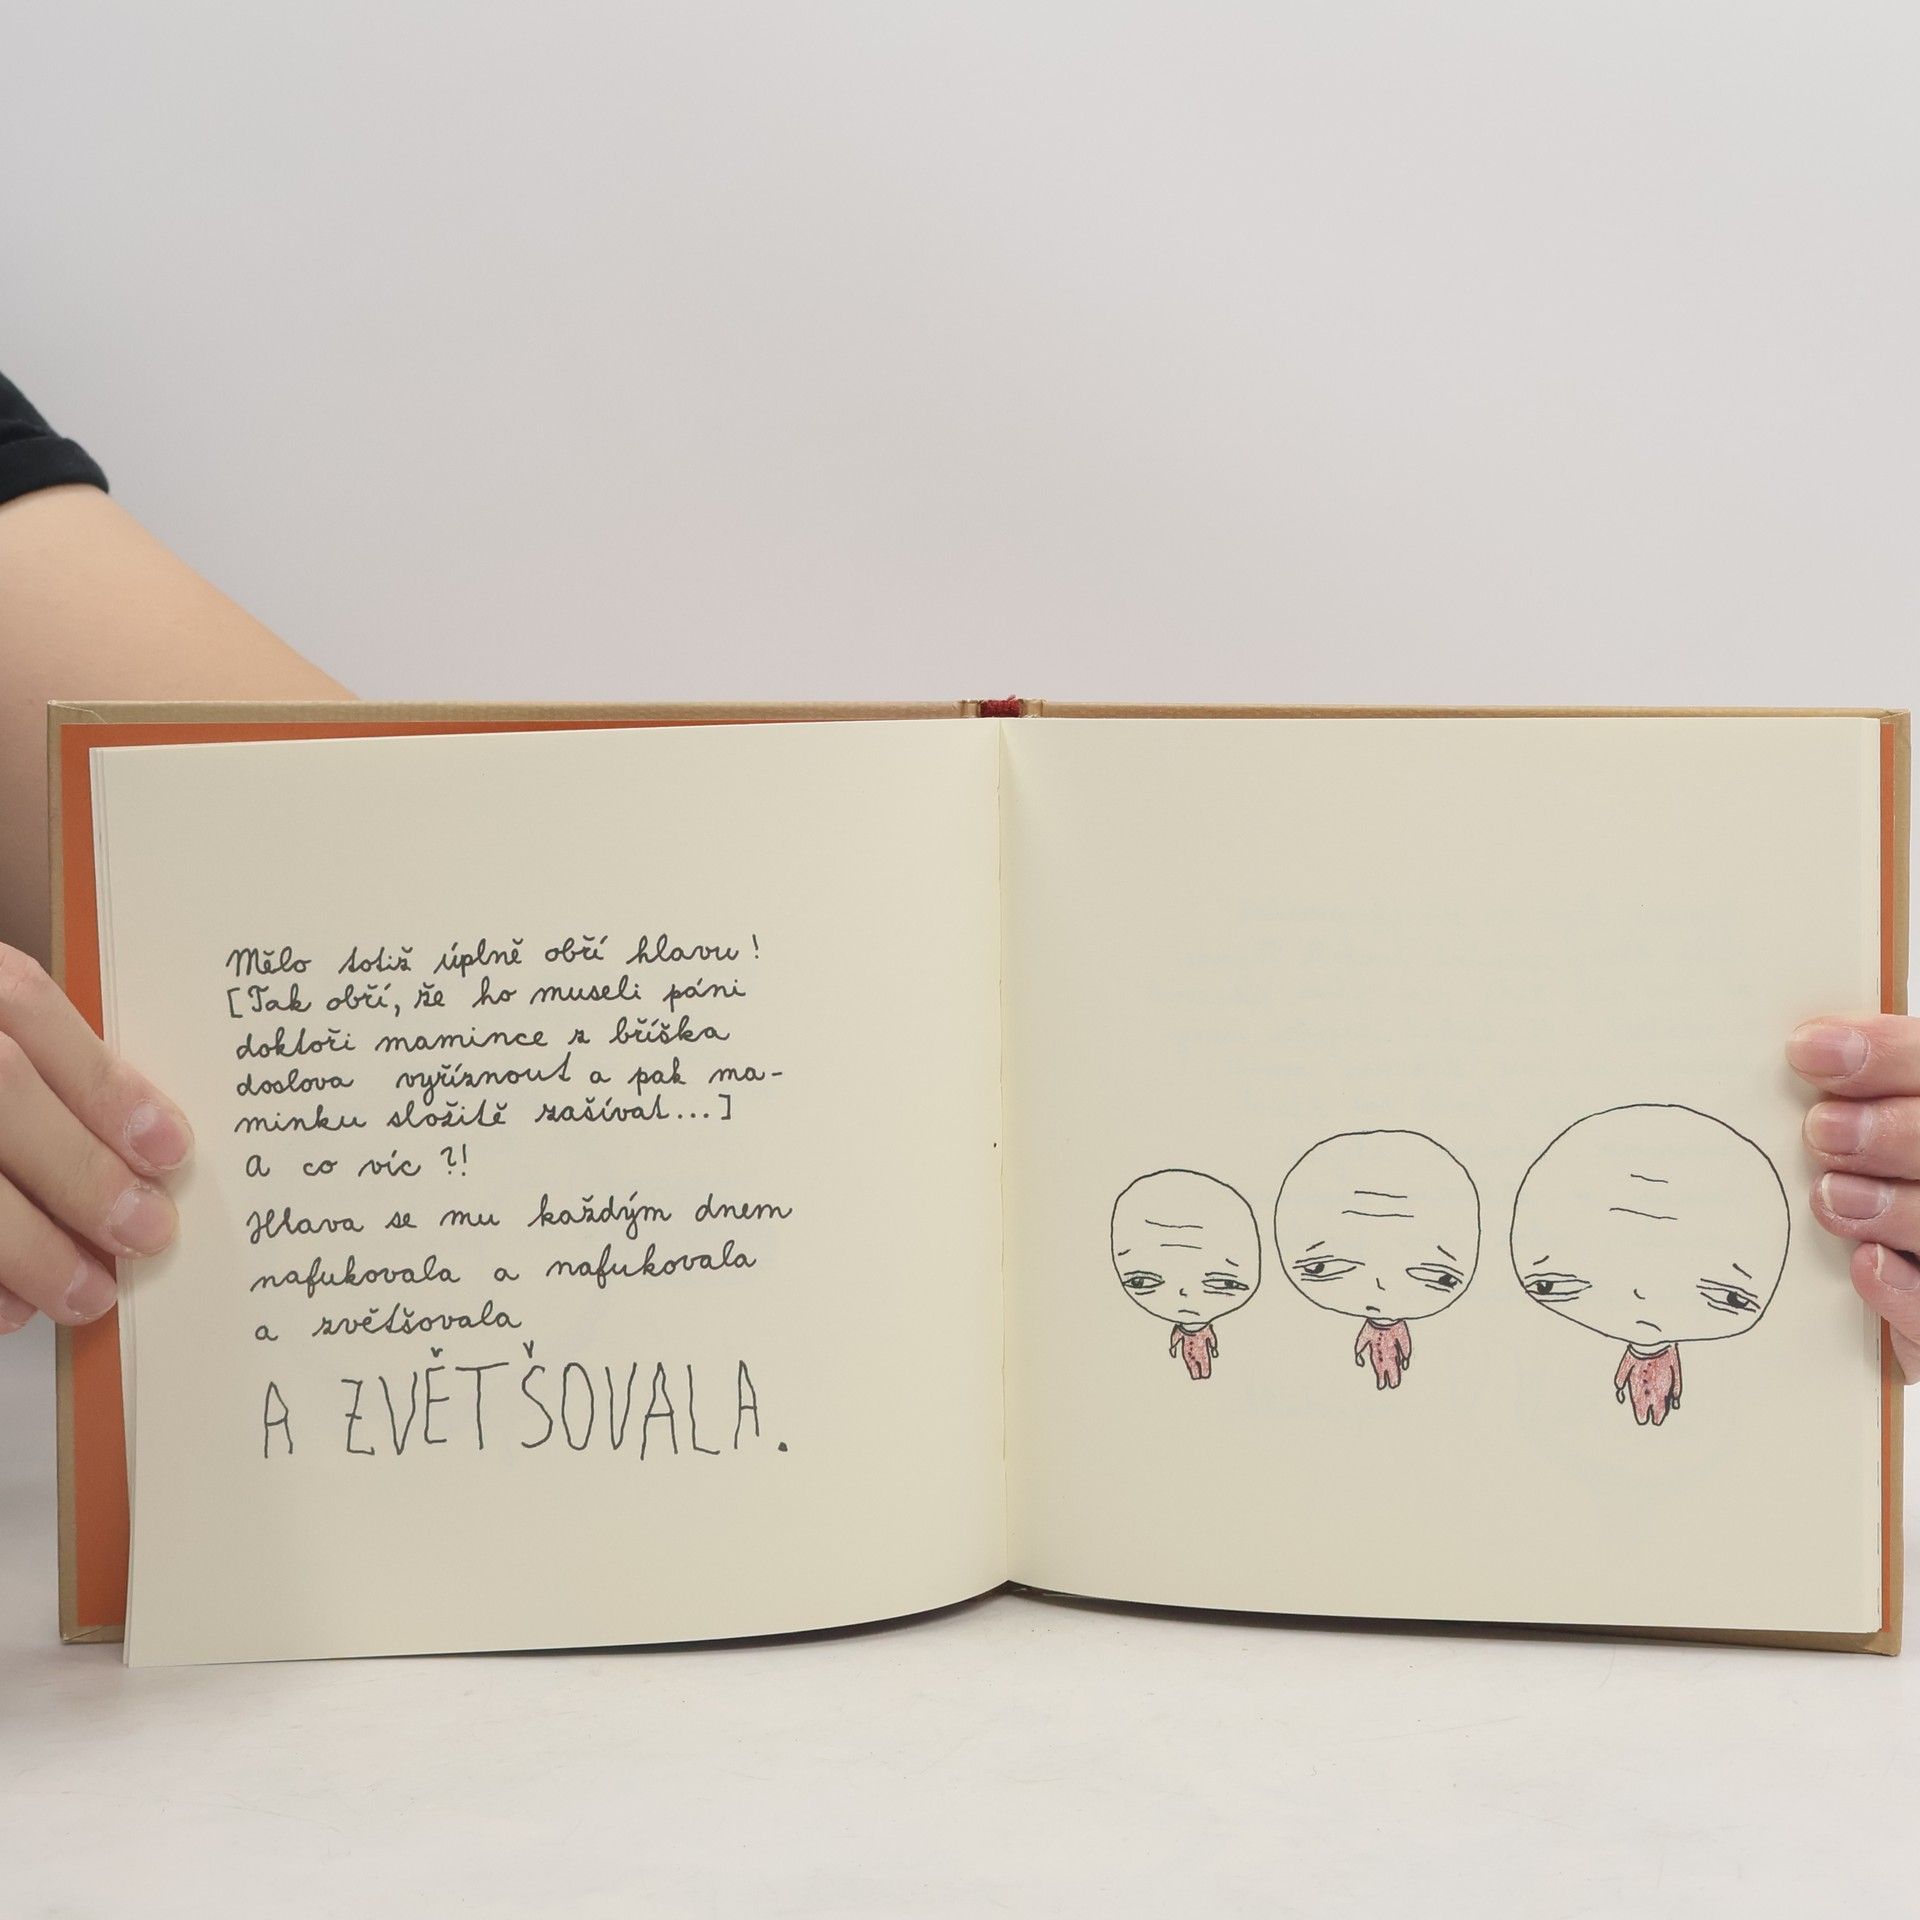 Mělo totiž úplně obří hlavu!
[Tak obří, že ho museli páni
doktoři mamince z bříška
doslova vyříznout a pak ma-
minku složitě zašívat...]
A co víc ?!
Hlava se mu každým dnem
nafukovala a nafukovala
a zvětšovala
A ZVĚTŠOVALA.